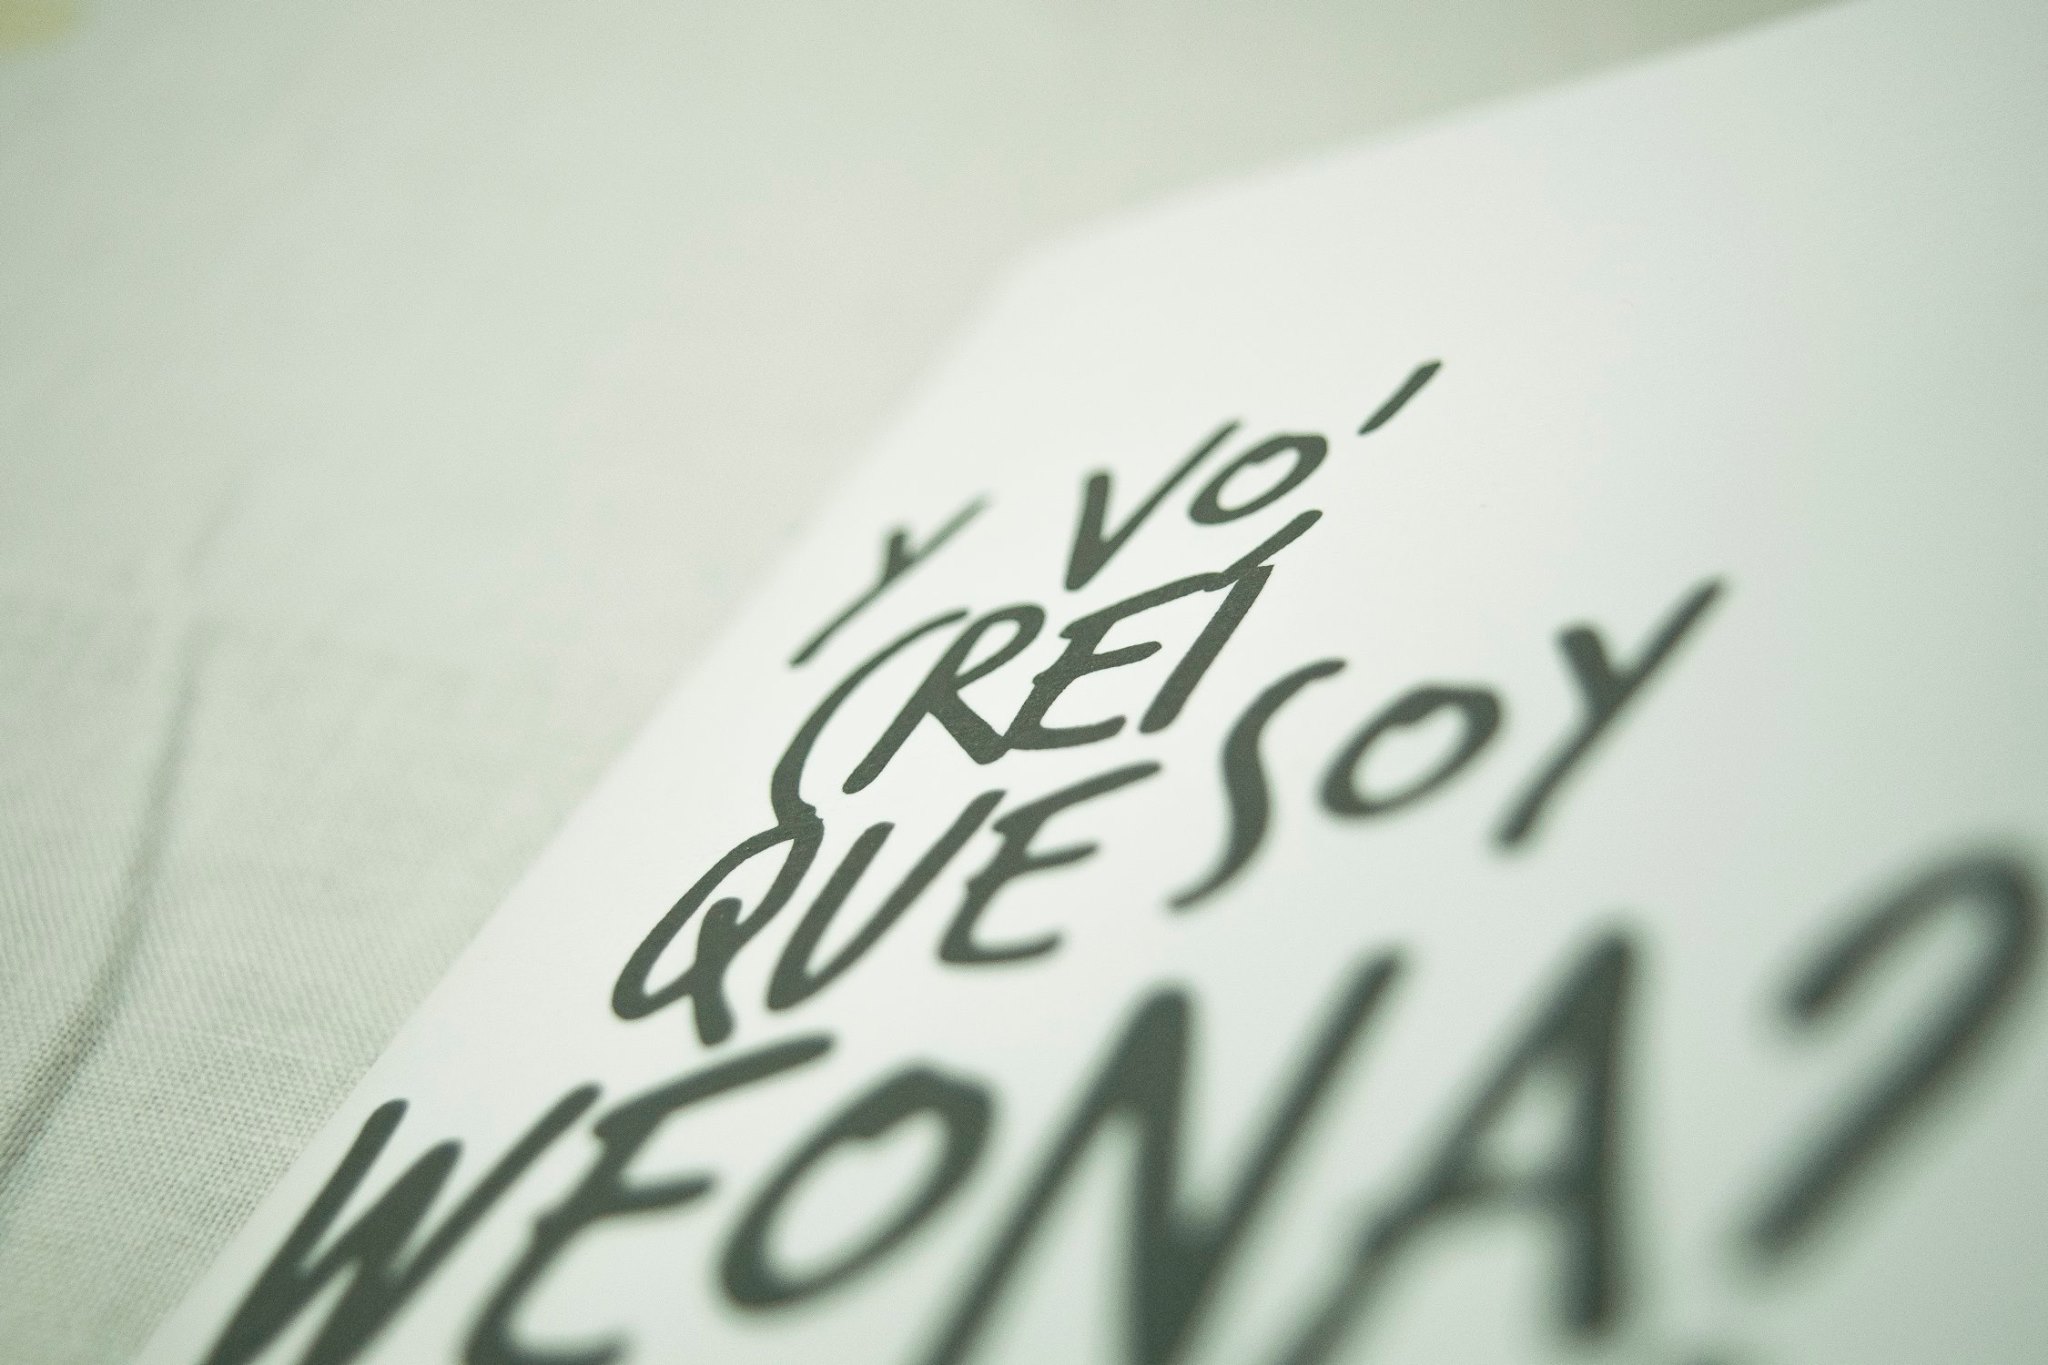 Y VO'
CREÍ
QUE SOY
WEONA?